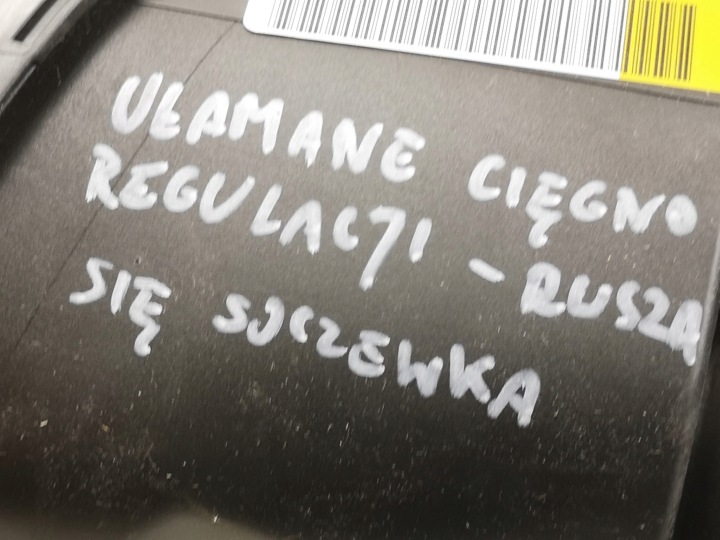 UŁAMANE CIĘGNO
REGULACJI - RUSZA
SIĘ SOCZEWKA